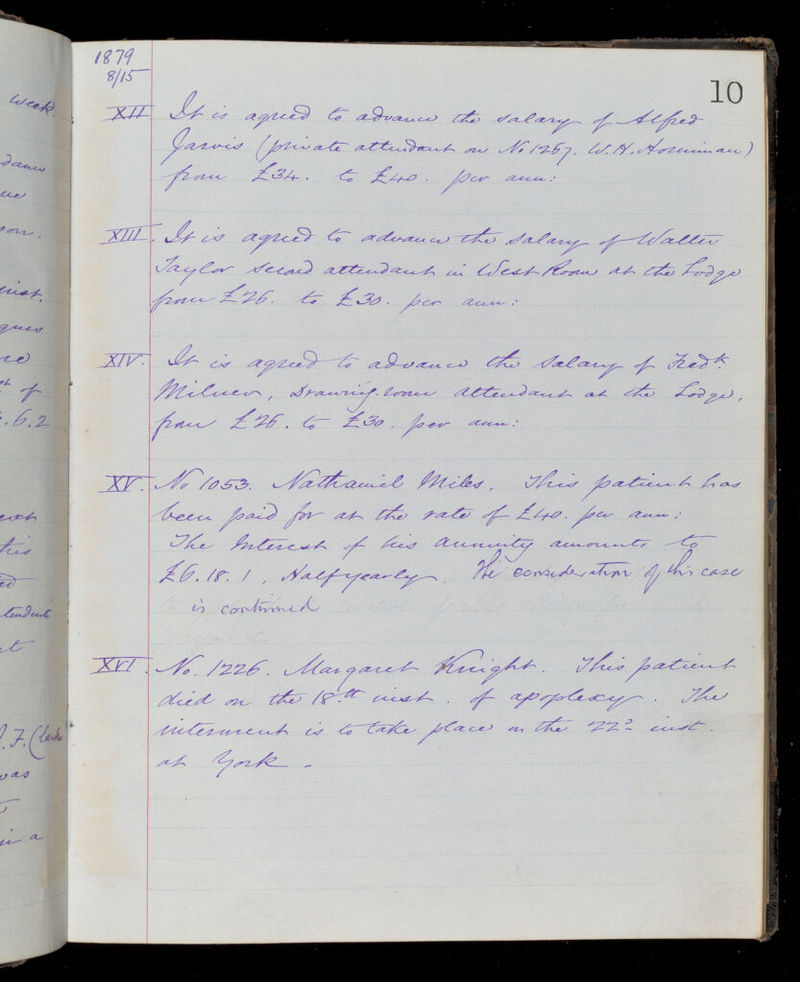 1879
8/15
10
XII It is agreed to advance the salary of Alfred
Jarvis (private attendant on No 1267. W. H. Horniman)
from £34. to £40. per ann:
XIII. It is agreed to advance the salary of Walter
Taylor second attendant in West Room at the Lodge
from £26. to £30. per ann:
XIV. It is agreed to advance the salary of Fredk.
Milner, Drawing-room attendant at the Lodge,
from £26. to £30. per ann:
XV. No 1053. Nathaniel Miles. This patient has
been paid for at the rate of £40. per ann:
The Interest of his annuity amounts to
£6.18.1, Halfyearly. The consideration of his case
is continued
XVI. No. 1226. Margaret Knight. This patient
died on the 18th inst. of apoplexy. The
interment is to take place on the 22d inst.
at York.
week.
of
.6.2
tendents
was
in a